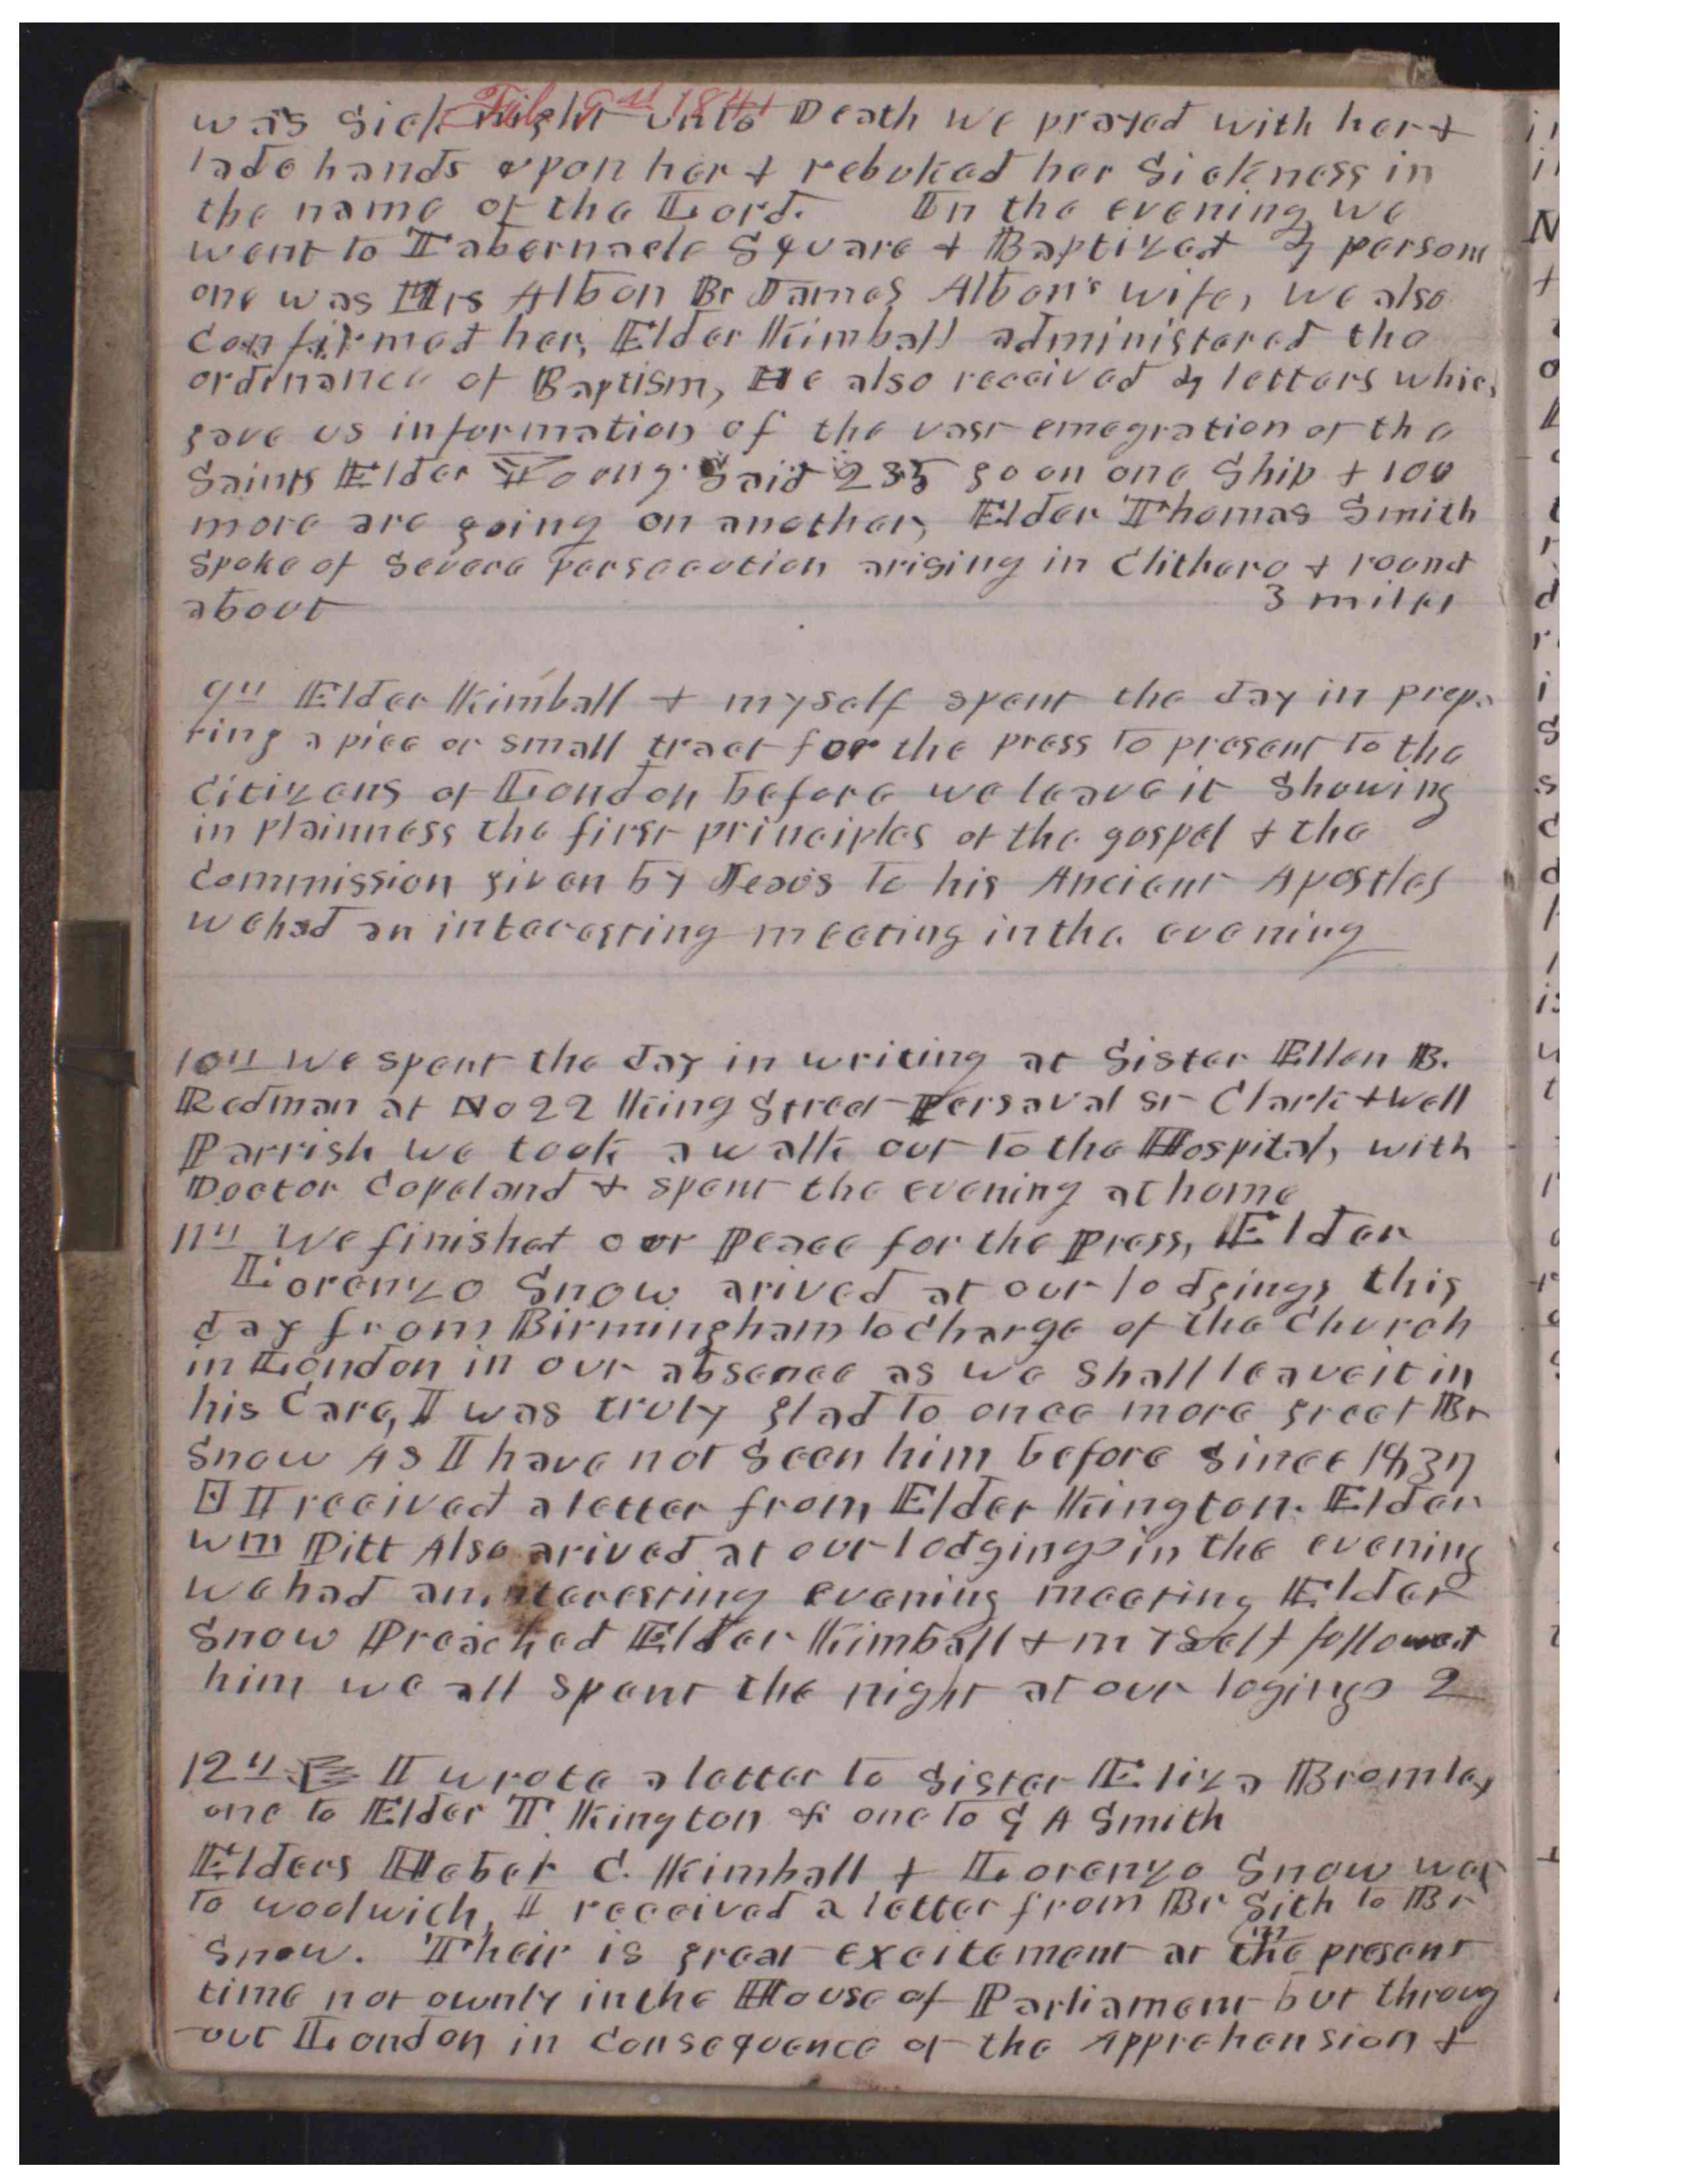 Feb. 9th 1841
was Sick night unto Death we prayed with her &
lade hands upon her & rebuked her Sickness in
the name of the Lord. In the evening we
went to Tabernacle Square & Baptized 2 persons
one was Mrs Albon Br James Albon's wife, we also
confirmed her, Elder Kimball administered the
ordinance of Baptism, We also received 2 letters whic
gave us information of the vast emegration of the
Saints Elder Young Said 235 go on one Ship & 100
more are going on another, Elder Thomas Smith
Spoke of Severe persecution arising in Clithero & round
about 3 miles
9th Elder Kimball & myself spent the day in prepa
ring a piece or small tract for the press to present to the
Citizens of London before we leave it Showing
in plainness the first principles of the gospel & the
Commission given by Jesus to his Ancient Apostles
we had an interesting meeting in the evening
10th We spent the day in writing at Sister Ellen B.
Redman at No 22 King Street Persaval St Clark & well
Parrish we took a walk out to the Hospital, with
Doctor Copeland & spent the evening at home
11th We finished our Peace for the Press, Elder
Lorenzo Snow arived at our lodgings this
day from Birmingham to charge of the Church
in London in our absence as we shall leave it in
his Care, I was truly glad to once more greet Br
Snow As I have not Seen him before Since 1837
I received a letter from Elder Kington. Elder
Wm Pitt Also arived at our lodgings in the evening
we had an interesting evening meeting Elder
Snow Preached Elder Kimball & myself followed
him we all spent the night at our logings 2
12th I wrote a letter to Sister Eliza Bromley
one to Elder T. Kington & one to G A Smith
Elders Heber C. Kimball & Lorenzo Snow wen
to woolwich, I received a letter from Br Sith to Br
m
Snow. Their is great excitement at the present
time not ownly in the House of Parliament but throug
out London in Consequence of the Apprehension &